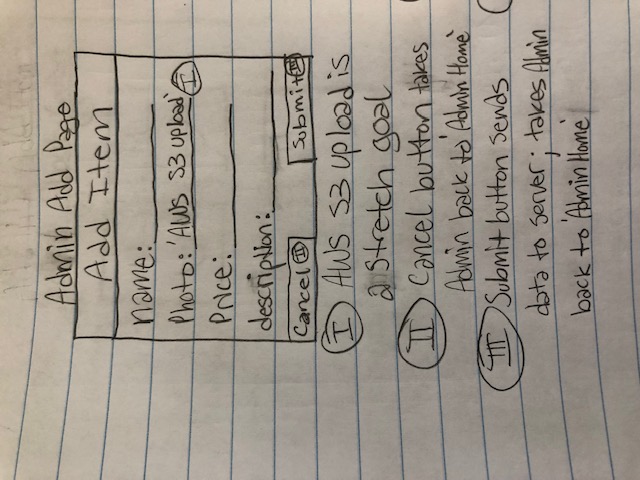 Admin Add Page
Add Item
name:
Photo: 'AWS S3 upload' I
Price:
description:
Cancel II Submit III
I AWS S3 upload is
a stretch goal
II Cancel button takes
Admin back to 'Admin Home'
III Submit button sends
data to server; takes Admin
back to 'Admin Home'